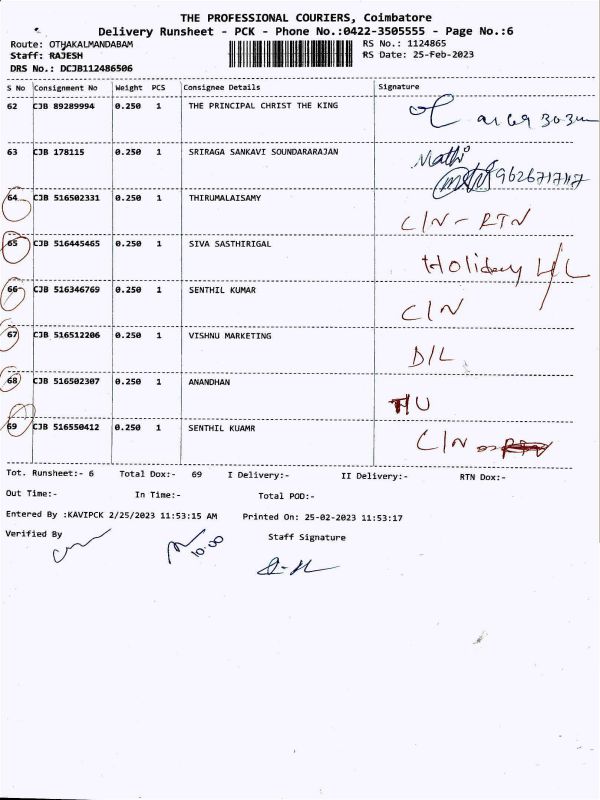 THE PROFESSIONAL COURIERS, Coimbatore
Delivery Runsheet - PCK - Phone No.:0422-3505555 - Page No.:6
Route: OTHAKALMANDABAM
RS No.: 1124865
Staff: RAJESH
RS Date: 25-Feb-2023
DRS No.: DCJB112486506
S No Consignment No Weight PCS Consignee Details Signature
62 CJB 89289994 0.250 1 THE PRINCIPAL CHRIST THE KING
63 CJB 178115 0.250 1 SRIRAGA SANKAVI SOUNDARARAJAN Mathi
64 CJB 516502331 0.250 1 THIRUMALAISAMY
C/N - RTN
65 CJB 516445465 0.250 1 SIVA SASTHIRIGAL
Holiday
66 CJB 516346769 0.250 1 SENTHIL KUMAR
C/N
67 CJB 516512206 0.250 1 VISHNU MARKETING
D/L
68 CJB 516502307 0.250 1 ANANDHAN
HU
69 CJB 516550412 0.250 1 SENTHIL KUAMR
C/N
Tot. Runsheet:- 6 Total Dox:- 69 I Delivery:- II Delivery:- RTN Dox:-
Out Time:- In Time:- Total POD:-
Entered By :KAVIPCK 2/25/2023 11:53:15 AM Printed On: 25-02-2023 11:53:17
Verified By Staff Signature
10:00